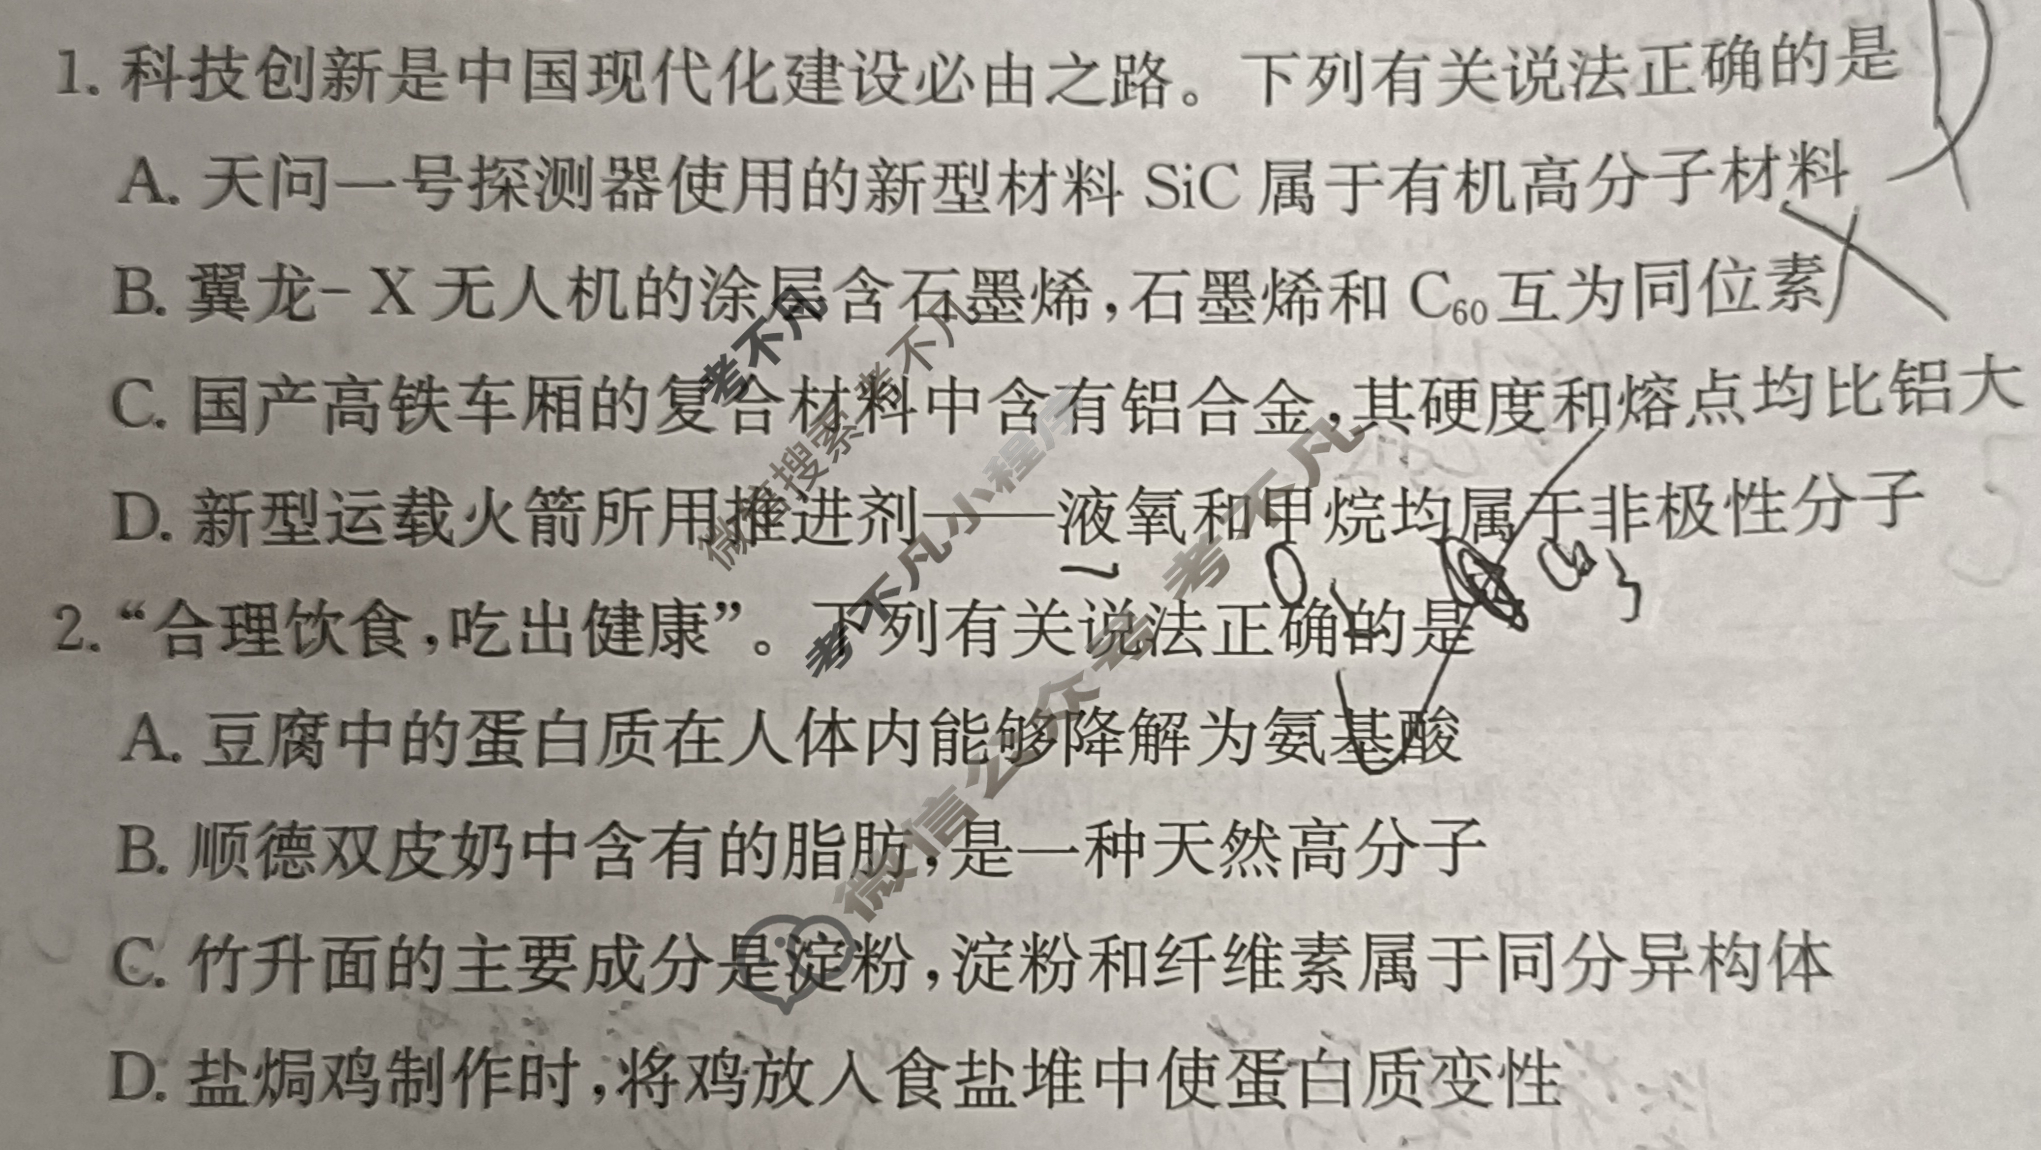 1. 科技创新是中国现代化建设必由之路。下列有关说法正确的是
A. 天问一号探测器使用的新型材料 SiC 属于有机高分子材料
B. 翼龙-X 无人机的涂层含石墨烯,石墨烯和 C₆₀ 互为同位素
C. 国产高铁车厢的复合材料中含有铝合金,其硬度和熔点均比铝大
D. 新型运载火箭所用推进剂——液氧和甲烷均属于非极性分子
2. “合理饮食,吃出健康”。下列有关说法正确的是
A. 豆腐中的蛋白质在人体内能够降解为氨基酸
B. 顺德双皮奶中含有的脂肪,是一种天然高分子
C. 竹升面的主要成分是淀粉,淀粉和纤维素属于同分异构体
D. 盐焗鸡制作时,将鸡放入食盐堆中使蛋白质变性
考不凡
微信搜索 考不凡
考不凡小程序
微信公众号 考不凡